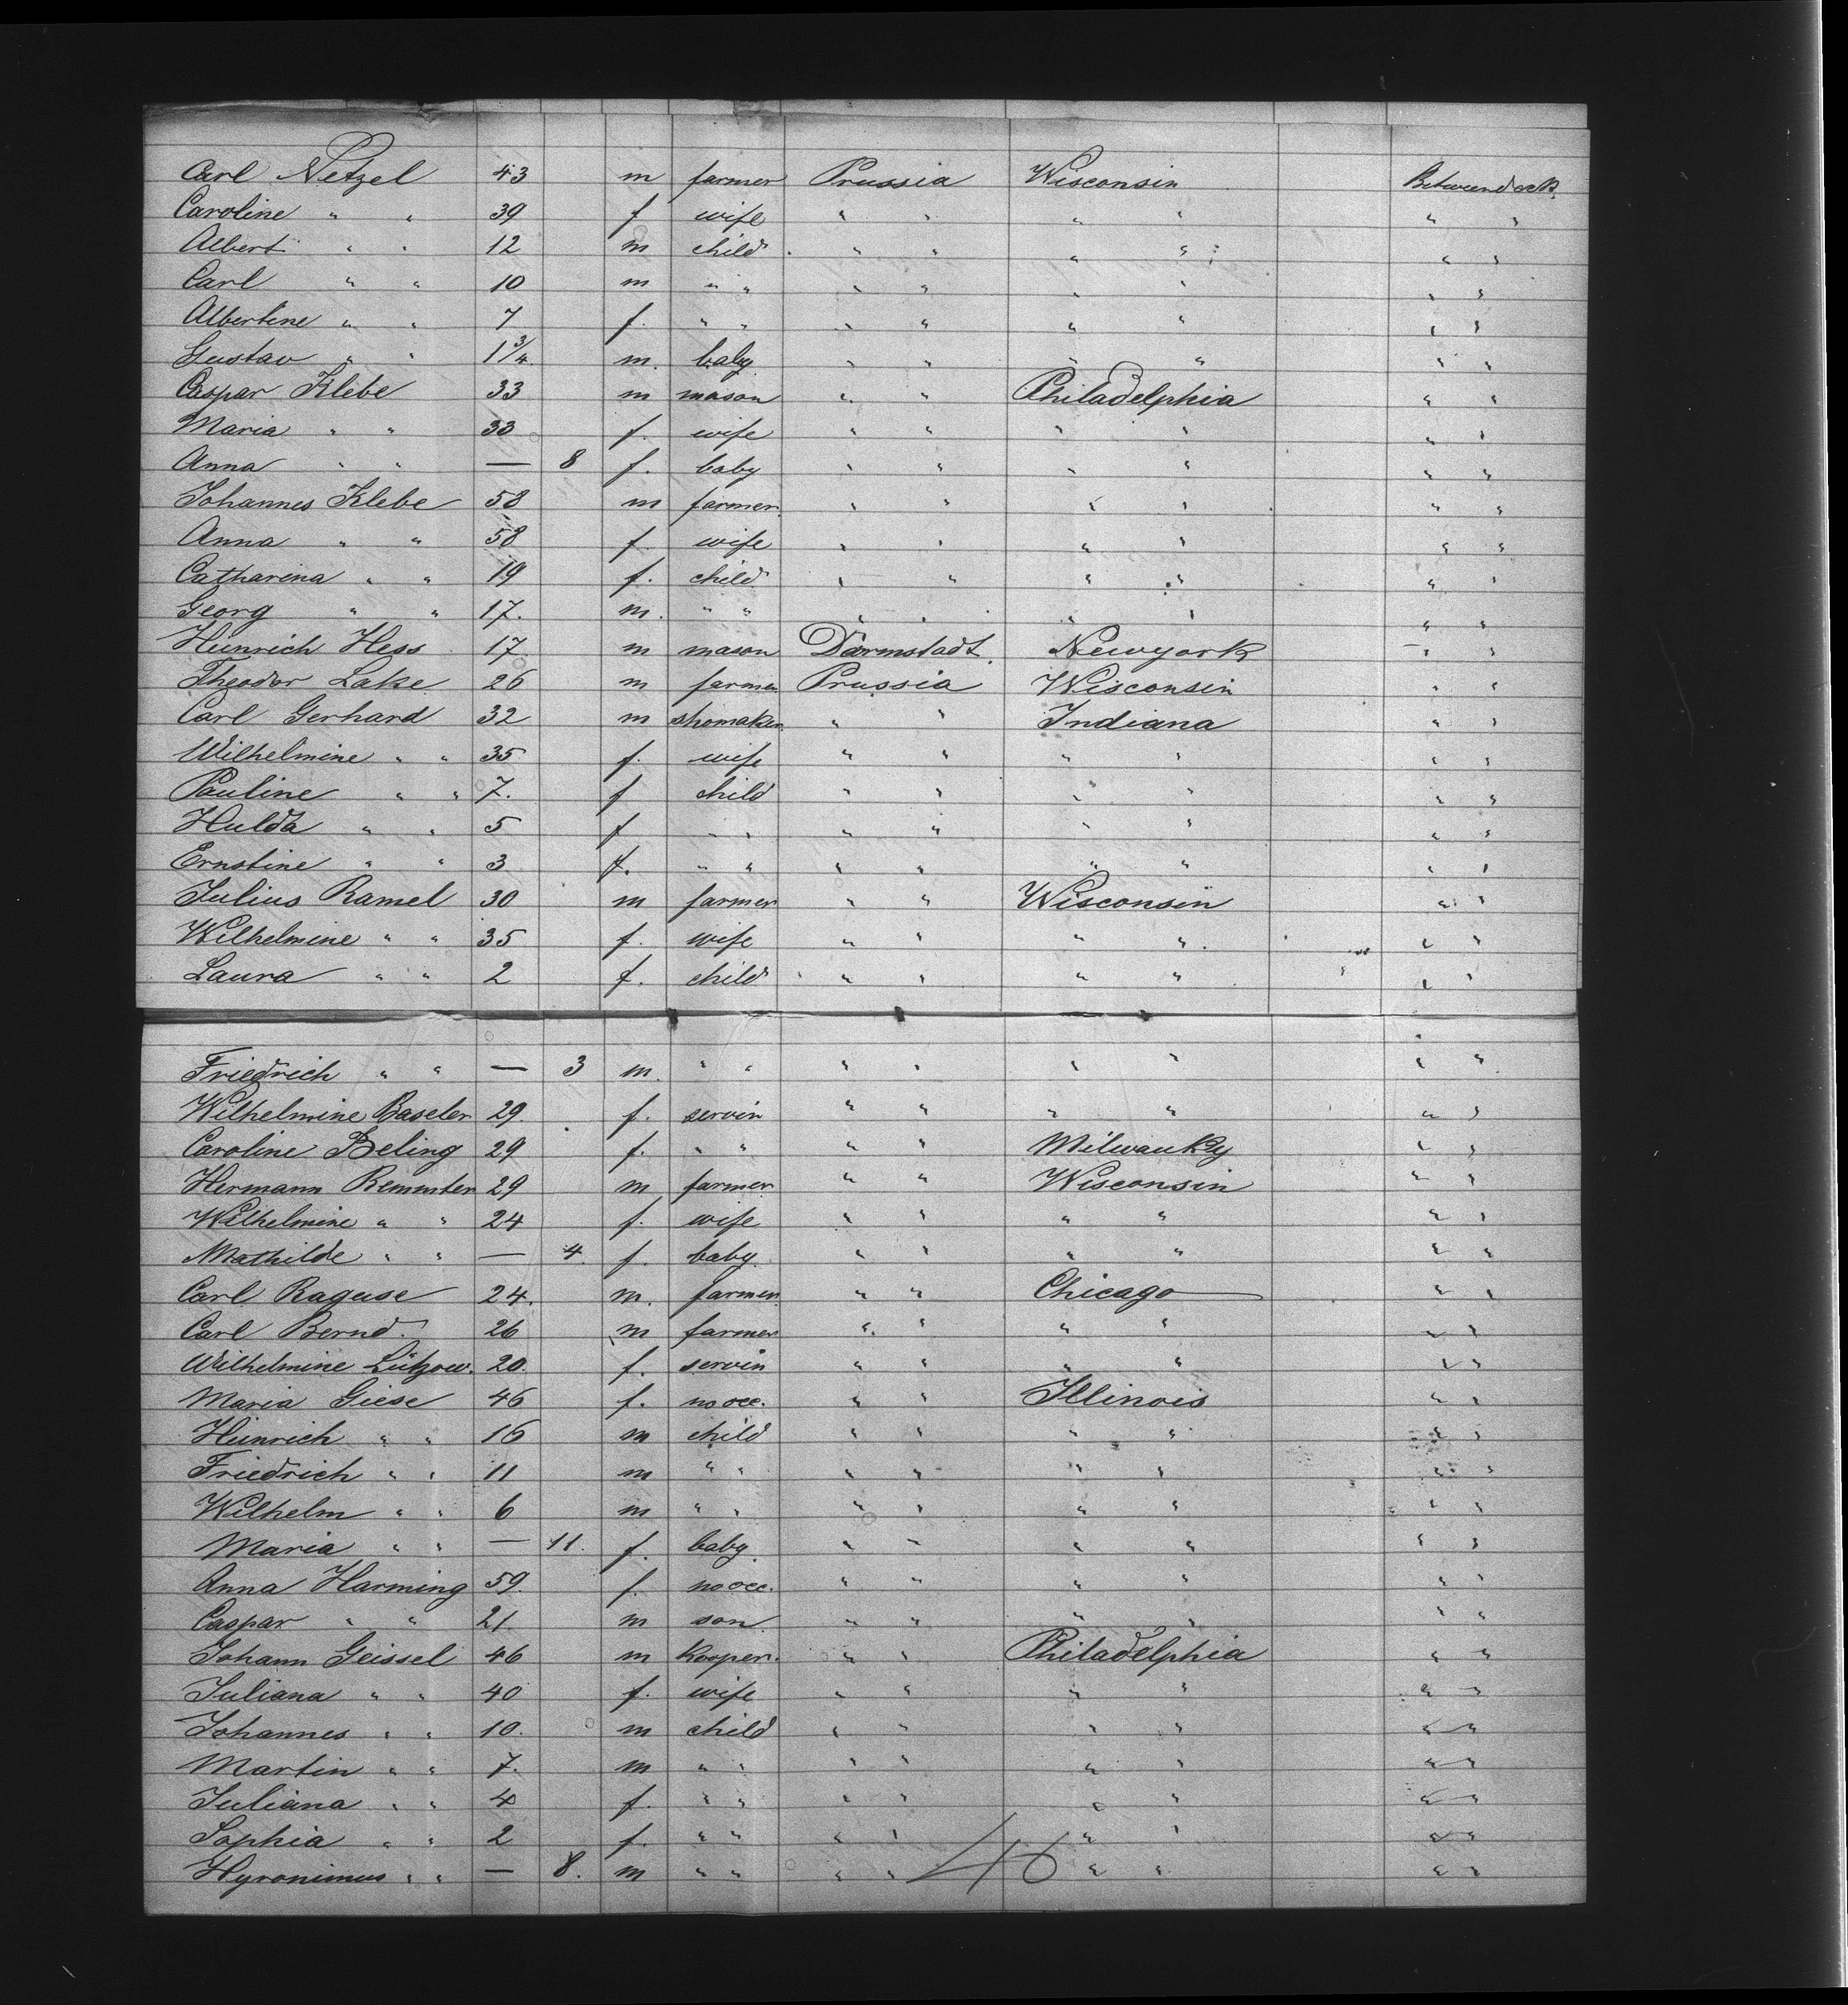 Carl Netzel 43 m farmer Prussia Wisconsin Betweendeck
Caroline " " 39 f wife " " " " " "
Albert " " 12 m child " " " " " "
Carl " " 10 m " " " " " " " "
Albertine " " 7 f. " " " " " " " "
Gustav " " 1 3/4. m. baby " " " " " "
Caspar Klebe 33 m mason " " Philadelphia " "
Maria " " 33 f. wife " " " " " "
Anna " " — 8 f. baby " " " " " "
Johannes Klebe 58 m farmer. " " " " " "
Anna " " 58 f wife " " " " " "
Catharina " " 19 f. child " " " " " "
Georg " " 17. m. " " " " " " " "
Heinrich Hess 17. m mason Darmstadt. Newyork " "
Theodor Lake 26 m farmer Prussia Wisconsin " "
Carl Gerhard 32 m shomaker " " Indiana " "
Wilhelmine " " 35 f. wife " " " " " "
Pauline " " 7. f child " " " " " "
Hulda " " 5 f " " " " " " " "
Ernstine " " 3 f. " " " " " " " "
Julius Ramel 30 m farmer " " Wisconsin " "
Wilhelmine " " 35 f. wife " " " " " "
Laura " " 2 f. child " " " " " "
Friedrich " " — 3 m. " " " " " " " "
Wilhelmine Baseler 29. f. servin " " " " " "
Caroline Beling 29 f. " " " " Milwauky " "
Hermann Remmter 29 m farmer " " Wisconsin " "
Wilhelmine " " 24 f. wife " " " " " "
Mathilde " " — 4. f. baby. " " " " " "
Carl Raguse 24. m. farmer. " " Chicago " "
Carl Bernd. 26 m farmer " " " " " "
Wilhelmine Lützow. 20. f. servin " " " " " "
Maria Giese 46 f. no occ. " " Illinois " "
Heinrich " " 16 m child " " " " " "
Friedrich " " 11 m " " " " " " " "
Wilhelm " " 6 m " " " " " " " "
Maria " " — 11. f. baby. " " " " " "
Anna Harming 59. f. no occ. " " " " " "
Caspar " " 21. m son " " " " " "
Johann Geissel 46 m kooper. " " Philadelphia " "
Juliana " " 40 f. wife " " " " " "
Johannes " " 10. m child " " " " " "
Martin " " 7. m " " " " " " " "
Juliana " " 4 f. " " " " " " " "
Sophia " " 2 f. " " " " " " " "
Hyronimus " " — 8. m " " " " 46 " " " "